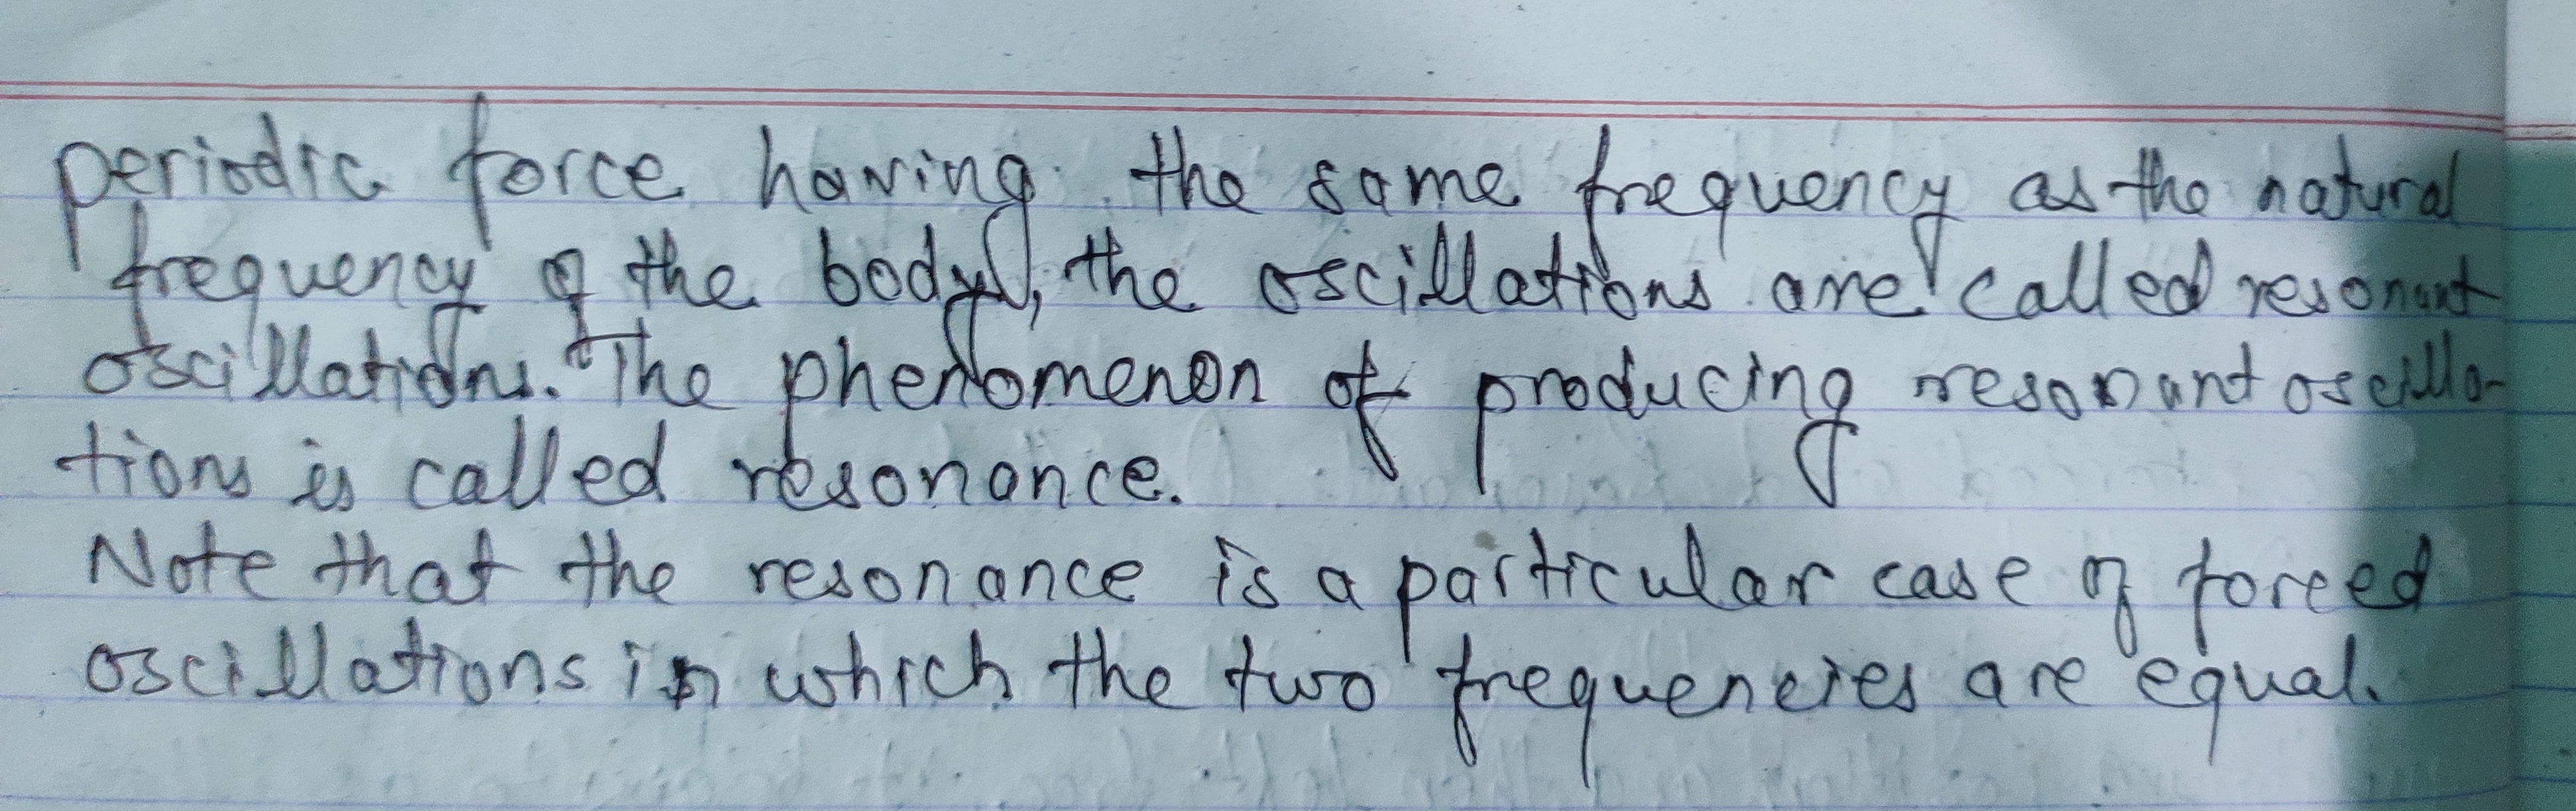 periodic force having the same frequency as the natural
frequency of the body, the oscillations are called resonant
oscillations. The phenomenon of producing resonant oscilla-
tions is called resonance.
Note that the resonance is a particular case of forced
oscillations in which the two frequencies are equal.